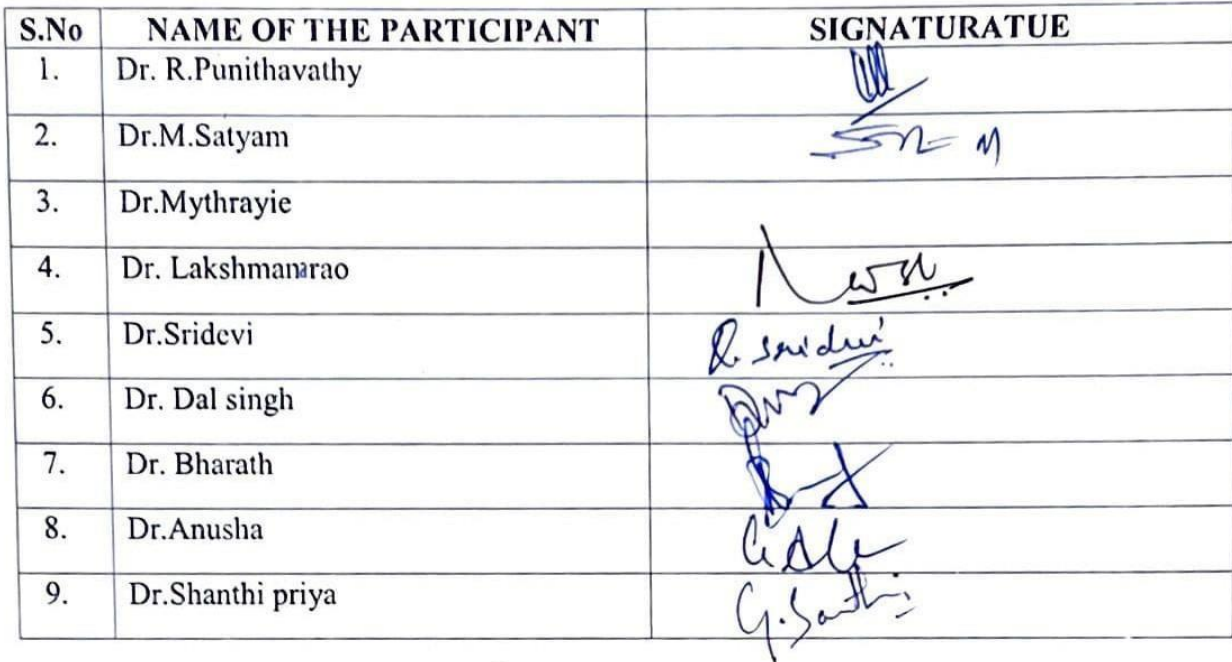 S.No NAME OF THE PARTICIPANT SIGNATURATUE
1. Dr. R.Punithavathy
2. Dr.M.Satyam
3. Dr.Mythrayie
4. Dr. Lakshmanarao
5. Dr.Sridevi R. Sridevi
6. Dr. Dal singh
7. Dr. Bharath
8. Dr.Anusha
9. Dr.Shanthi priya G. Santhi